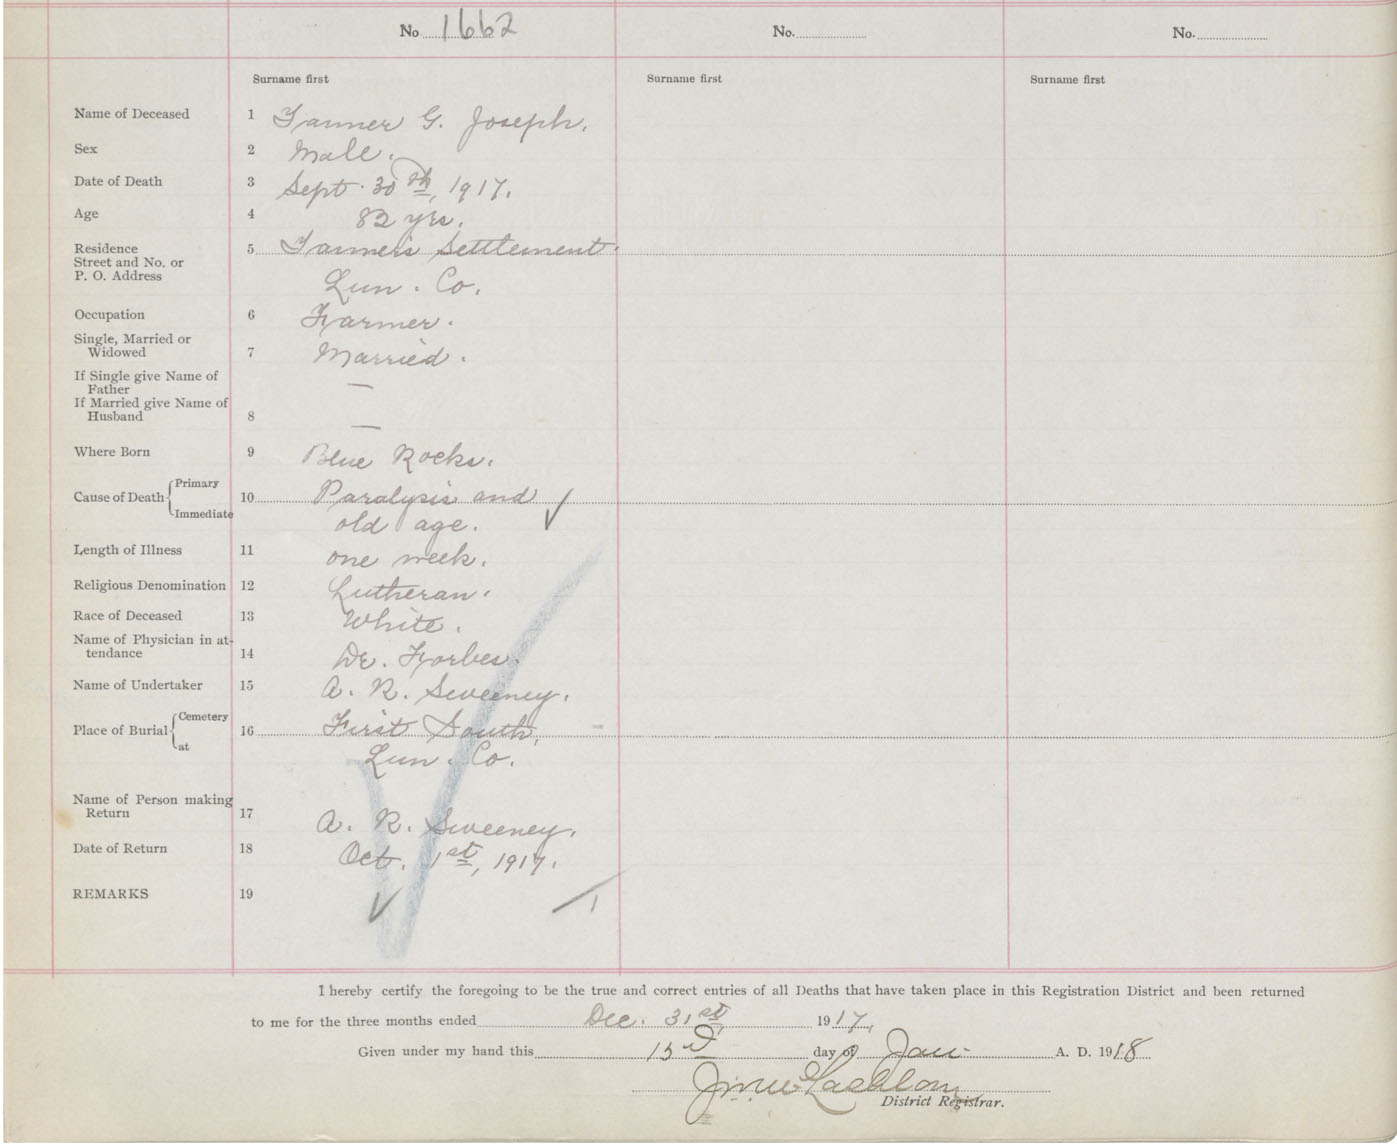 No. 1662 No. No.
Surname first Surname first Surname first
Name of Deceased 1 Tanner G. Joseph.
Sex 2 Male.
Date of Death 3 Sept. 30th, 1917.
Age 4 82 yrs.
Residence 5 Tanner's Settlement.
Street and No. or
P. O. Address Lun. Co.
Occupation 6 Farmer.
Single, Married or
Widowed 7 Married.
If Single give Name of
Father —
If Married give Name of
Husband 8 —
Where Born 9 Blue Rocks.
Cause of Death Primary 10 Paralysis and
Immediate old age.
Length of Illness 11 one week.
Religious Denomination 12 Lutheran.
Race of Deceased 13 White.
Name of Physician in at-
tendance 14 Dr. Forbes.
Name of Undertaker 15 A. R. Sweeney.
Place of Burial Cemetery 16 First South,
at Lun. Co.
Name of Person making
Return 17 A. R. Sweeney.
Date of Return 18 Oct. 1st, 1917.
REMARKS 19
I hereby certify the foregoing to be the true and correct entries of all Deaths that have taken place in this Registration District and been returned
to me for the three months ended Dec. 31st 1917,
Given under my hand this 15th day of Jan. A. D. 1918
District Registrar.